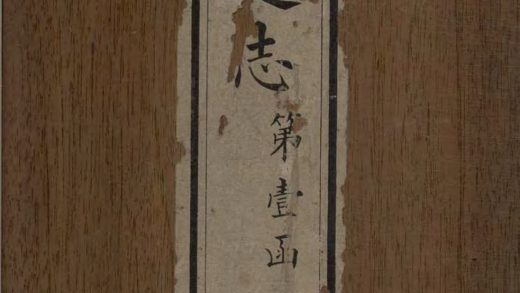 志
第壹函